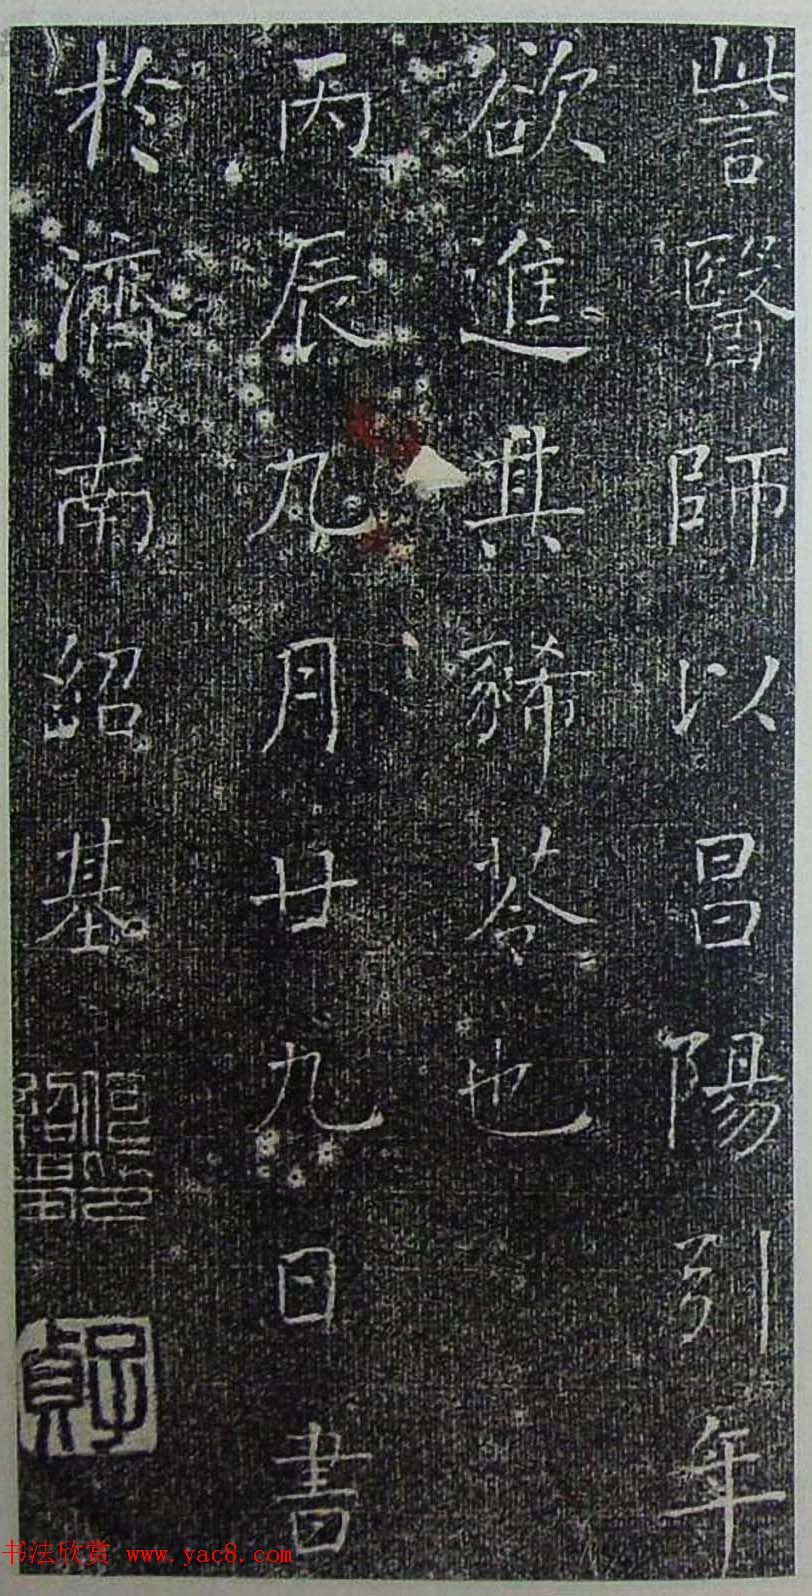 訾醫師以昌陽引年
欲進其豨苓也
丙辰九月廿九日書
於濟南紹基
何紹基印
子貞
书法欣赏 www.yac8.com